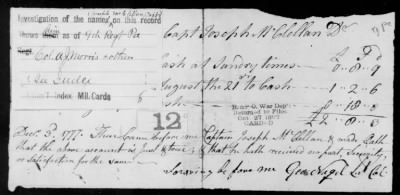 Investigation of the names on this record
Shows as 9th Regt Pa
Col. A. J. Morris
See Index
Index Mil. Cards
Capt Joseph McClellan Dr
Cash at Sundry times 0..8..9
August the 21st to Cash 1..2..6
0..18..
2..8..
R. & P. O. War Dept
Returned to Files
Oct 27 1907
CARD-D
12
Decr. 3d. 1777. Then Came before me Captain Joseph McClellan & made Oath
that the above account is Just & true & that he hath received no part, Security,
or Satisfaction for the same
Sworn before me Geo: Nagel Lt Col: